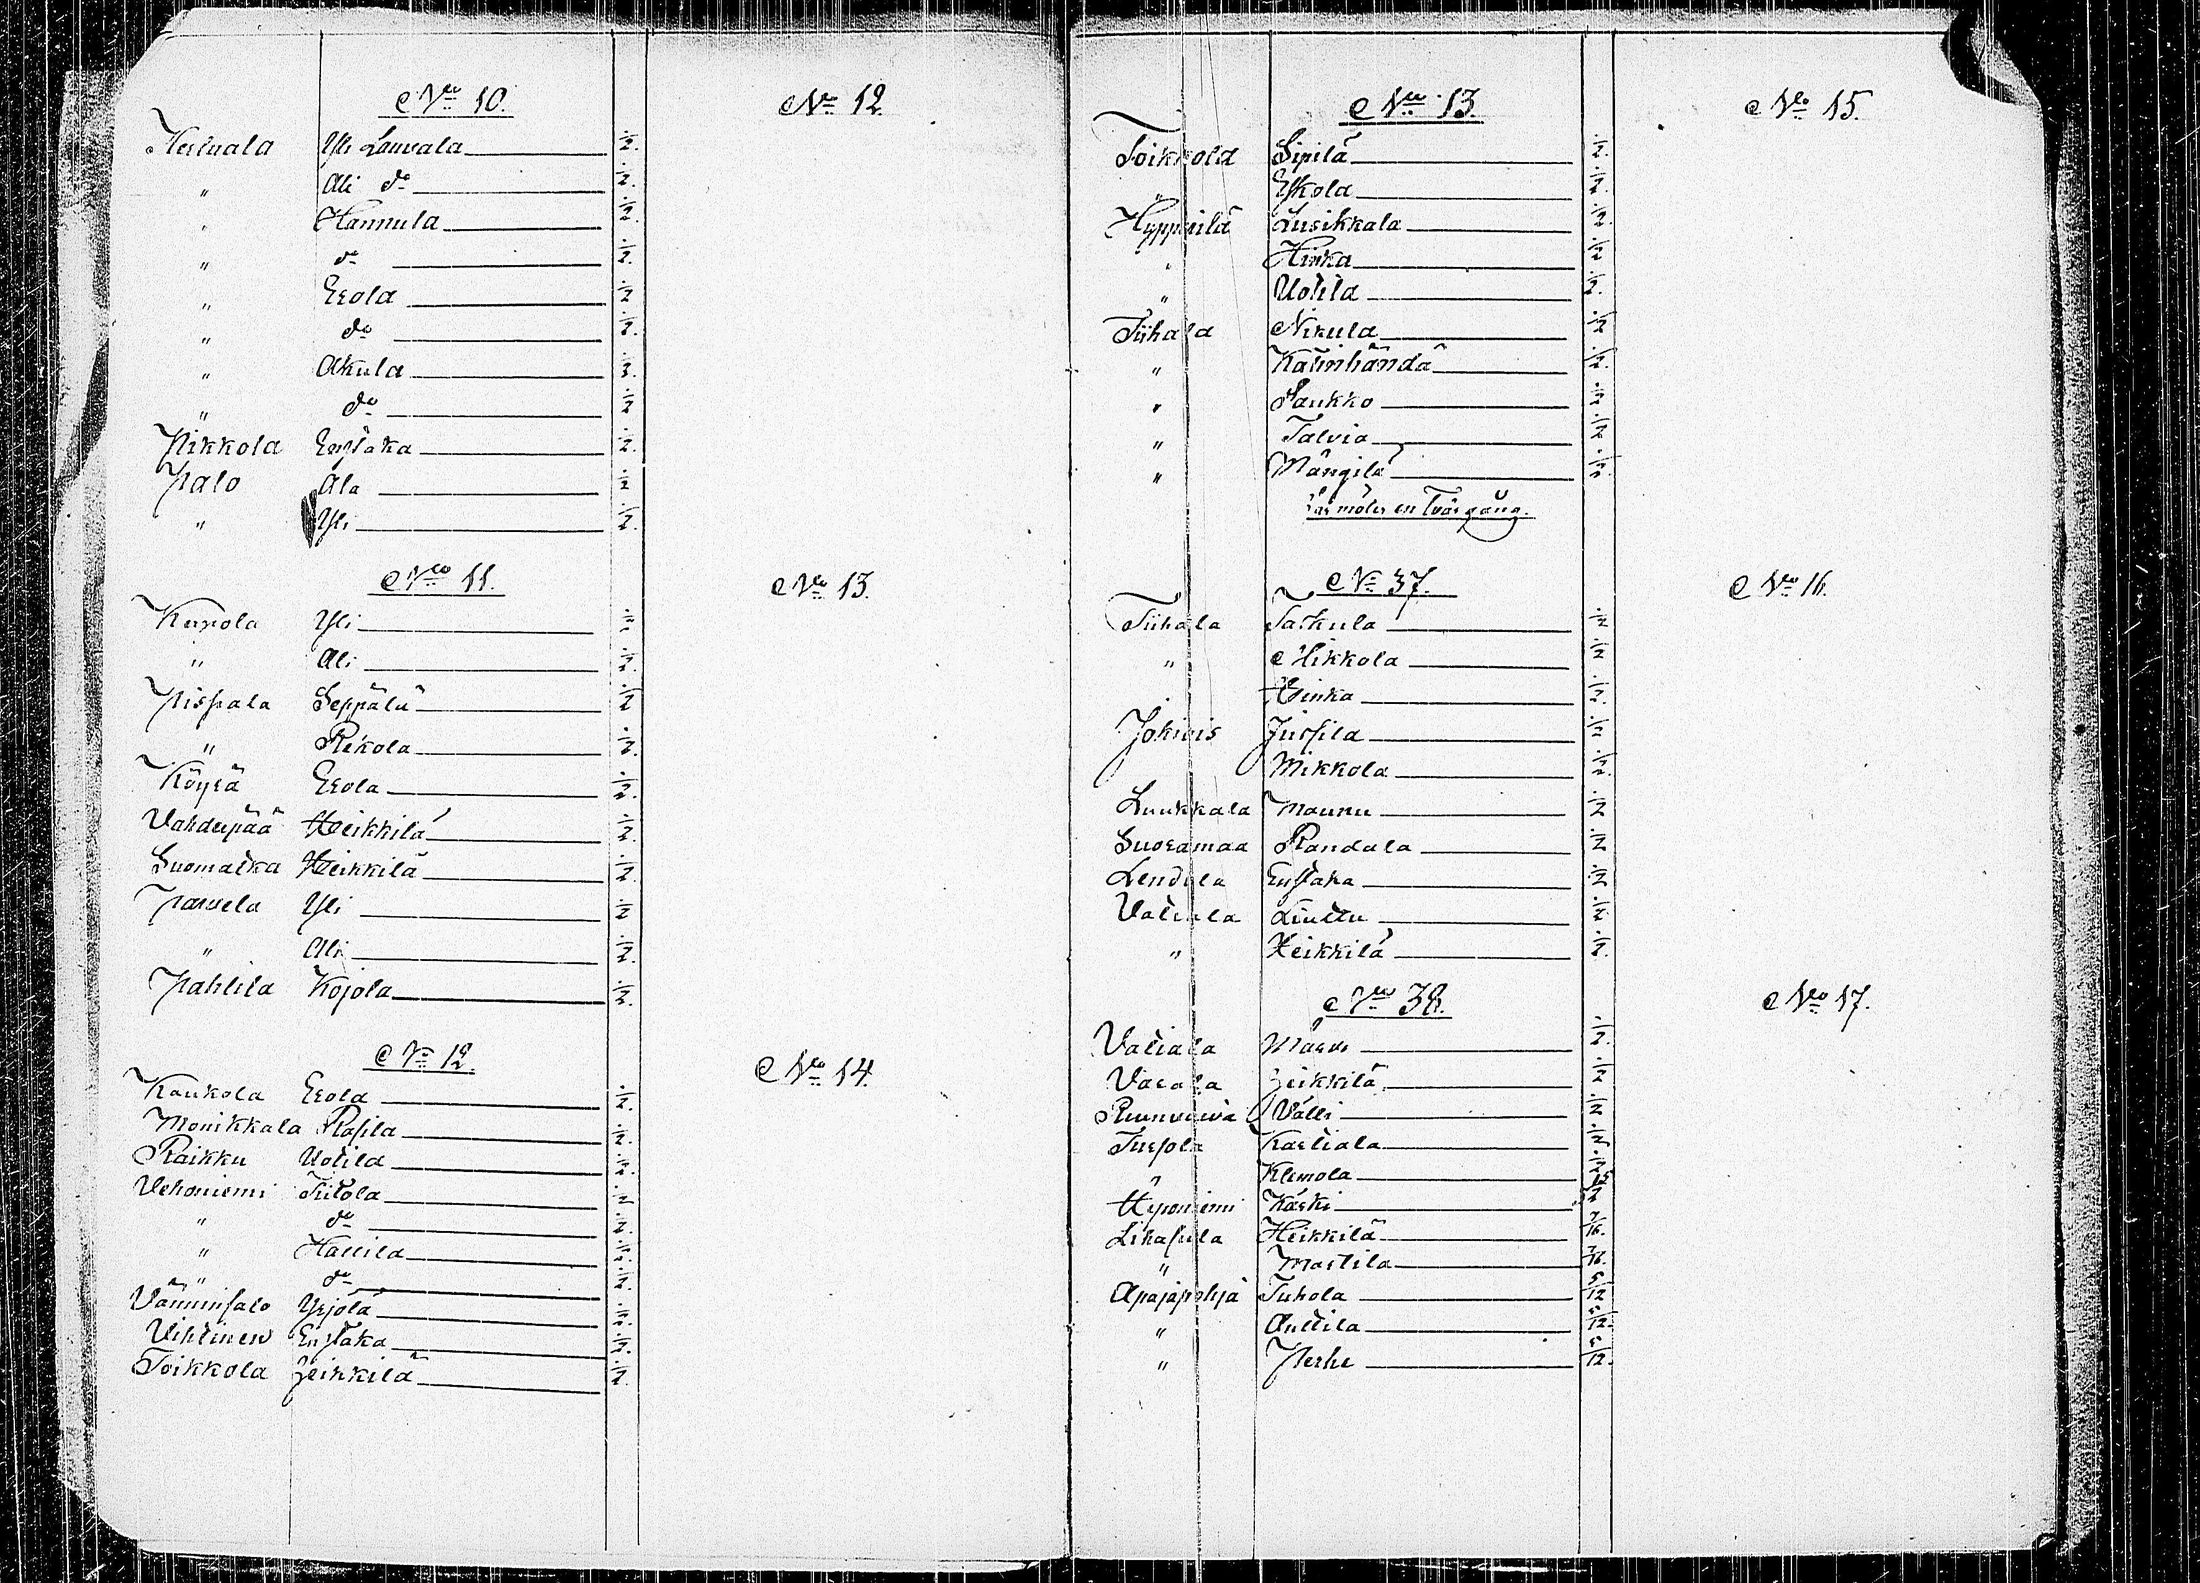 No 10.
Yli Louvala 1/2.
" Ali do 1/2.
" Hannula 1/2.
" do 1/2.
" Erola 1/2
" do 1/2.
" Akula 1/2.
" do 1/2
Pikkola Enstaka 1/2.
Palo Ala 1/2
" Yli 1/2.
No 12.
No 11.
Kuppola Yli 1/2
" Ali 1/2.
Pispala Seppälä 1/2
" Rekola 1/2.
Köyrä Erola 1/2.
Vahderpää Heikkilä 1/2.
Suomatka Heikkilä 1/2.
Parvela Yli 1/2
" Ali 1/2.
Pahlila Kojola 1/2.
No 13.
No 12.
Kaukola Erola 1/2.
Monikkala Rasila 1/2.
Raikku Uotila 1/2.
Vehoniemi Tiitola 1/2
" do 1/2.
" Hallila 1/2.
" do 1/2.
Vänninsalo Yrjölä 1/2.
Vihtinen Enstaka 1/2.
Toikkola Jeikkilä 1/2.
No 14.
No 13.
Toikkola Sipilä 1/2.
" Eskola 1/2.
Hyppärilä Lusikkala 1/2
" Hinka 1/2
" Uotila 1/2.
Tiihala Nikula 1/2
" Katinhändä 1/2.
" Saukko 1/2
" Talvia 1/2
" Mängilä 1/2.
här möter en Tvärgång.
No 15.
No 37.
Tiihala Tarkula 1/2
" Mikkola 1/2
Hinka 1/2.
Jokiois Jussila 1/2
Mikkola 1/2.
Luukkala Maunu 1/2
Suoramaa Randala 1/2
Lendola Enstaka 1/2
Vatiala Liuttu 1/2
" Heikkilä 1/2.
No 16.
No 38.
Vatiala 1/2.
Varala Jeikkilä 1/2
Välli 1/2
Tursola Karliala 1/2
" Klemola 1/2
Hyponiemi Käski
Lihasula Heikkilä 7/16.
" Martila 7/16.
Apajapohja Tuhola 5/12
" Anttila 5/12.
" Perhe 5/12.
No 17.